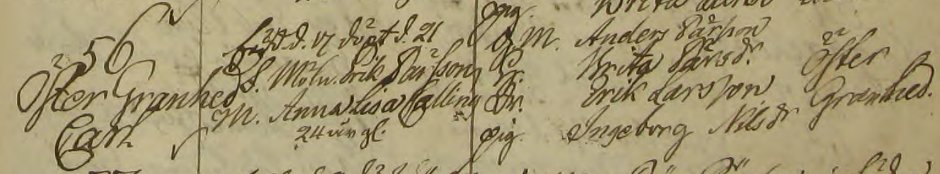 56
Öster Granhed
Carl
föd d. 17 döpt d. 21
F. Erik Pärsson
M. Anna Lisa Celling
24 år gl.
pig.
M. Anders Pärsson
Brita Pärsdr.
Dr. Erik Larsson
pig. Ingeborg Nilsdr
Öster
Granhed.